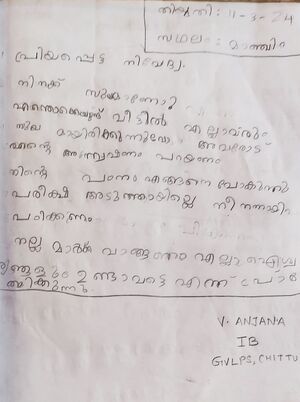 തിയ്യതി: 11-3-24
സ്ഥലം: മാഞ്ചിറ
പ്രിയപ്പെട്ട നിവേദ്യ
നിനക്ക് സുഖമാണോ?
എന്തൊക്കെയുണ്ട് വീട്ടിൽ എല്ലാവരും
സുഖ മായിരിക്കുന്നുവോ. അവരോട്
എന്റെ അന്വേഷണം പറയണം
നിന്റെ പഠനം എങ്ങനെ പോകുന്നു
പരീക്ഷ അടുത്തായില്ലെ നീ നന്നായി
പഠിക്കണം
നല്ല മാർക്ക് വാങ്ങണം എല്ലാ ഐശ്വ
ര്യങ്ങളും ഉണ്ടാവട്ടെ എന്ന് പ്രാർ
ത്ഥിക്കുന്നു.
V. ANJANA
IB
GVLPS, CHITTU